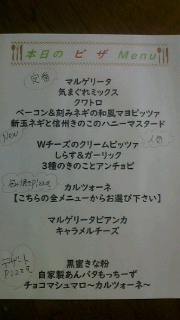 本日の ピ ザ Menu
定番
マルゲリータ
気まぐれミックス
クワトロ
ベーコン&刻みネギの和風マヨピッツァ
新玉ネギと信州きのこのハニーマスタード
New
Wチーズのクリームピッツァ
人気
しらす&ガーリック
3種のきのことアンチョビ
カルツォーネ
【こちらの全メニューからお選び下さい】
マルゲリータビアンカ
キャラメルチーズ
デザート
PIZZA
黒蜜きな粉
自家製あんバタもっちーず
チョコマシュマロ~カルツォーネ~